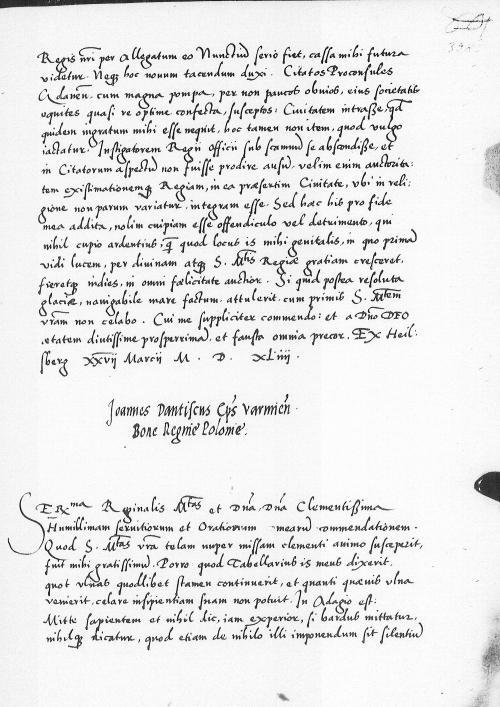 Regis nri per Allegatum eo Nunctiũ serio fiet, cassa mihi futura
videtur. Neq; hoc nouum tacendum duxi. Citatos Proconsules
cum magna pompa, per non paucos obuios, eius societatis
equites quasi re optime confecta, susceptos: Ciuitatem intrasse, qd
quidem ingratum mihi esse nequit, hoc tamen non item, quod vulgo
iactatur. Instigatorem Regii Officii sub scamnũ se abscondisse, et
in Citatorum aspectũ non fuisse prodire ausũ. velim enim auctorita:
tem existimationemq; Regiam, in ea præsertim Ciuitate, vbi in reli:
gione non parum variatur, integram esse. Sed hæc his pro fide
mea addita, nolim cuipiam esse offendiculo vel detrimento, qui
nihil cupio ardentius, q̃ quod locus is mihi genitalis, in quo primã
vidi lucem, per diuinam atq; S. Mtis Regiæ gratiam cresceret,
fieretq; indies, in omni fœlicitate auctior. Si quid postea resoluta
glacie, nauigabile mare factum, attulerit, cum primis S. Mtem
vram non celabo. Cui me suppliciter commendo: et a Dno DEO
ætatem diutissime prosperrimã, et fausta omnia precor. EX Heil:
sberg XXVII Marcii M. D. XLiiij.
Joannes Dantiscus Eps Varmien̄.
Bone Regine Polonie.
SERma Reginalis Mtas et Dna, Dna Clementissima
Humillimam seruitiorum et Orationum mearũ commendationem.
Quod S. Mtas vra telam nuper missam clementi animo susceperit,
fuit mihi gratissimũ. Porro quod Tabellarius is meus dixerit,
quot vlnas quodlibet stamen continuerit, et quanti quæuis vlna
venierit, celare insipientiam suam non potuit. In Adagio est:
Mitte sapientem et nihil dic, iam experior, si bardus mittatur,
nihilq; dicatur, quod etiam de nihilo illi imponendum sit silentiũ